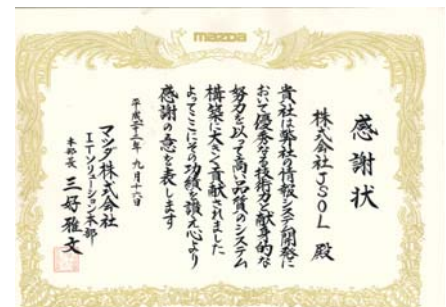 mazda
感謝状
株式会社JSOL 殿
貴社は弊社の情報システム開発に
おいて優秀なる技術力と献身的な
努力を以って高品質のシステム
構築に大きく貢献されました
よってここにその功績を讃え心より
感謝の意を表します
平成二十三年 九月十六日
マツダ株式会社
ITソリューション本部
本部長 三好雅文